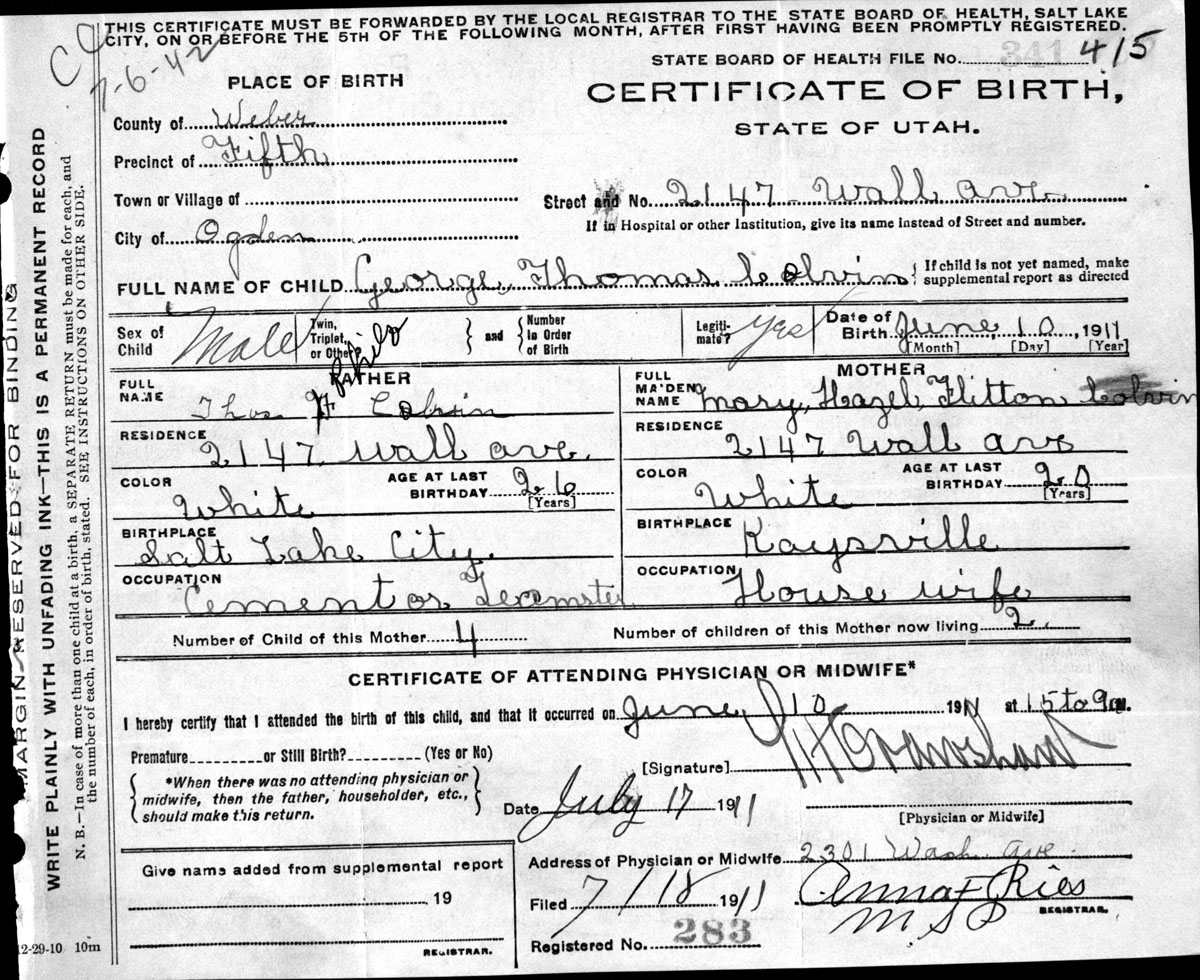 THIS CERTIFICATE MUST BE FORWARDED BY THE LOCAL REGISTRAR TO THE STATE BOARD OF HEALTH, SALT LAKE
CITY, ON OR BEFORE THE 5TH OF THE FOLLOWING MONTH, AFTER FIRST HAVING BEEN PROMPTLY REGISTERED.
7-6-42
STATE BOARD OF HEALTH FILE No. 341 415
PLACE OF BIRTH
CERTIFICATE OF BIRTH,
STATE OF UTAH.
County of Weber
Precinct of Fifth
Town or Village of
Street and No. 2147 Wall ave.
If in Hospital or other Institution, give its name instead of Street and number.
City of Ogden
FULL NAME OF CHILD George, Thomas Colvin { If child is not yet named, make supplemental report as directed
Sex of Child Male
Twin, Triplet, or Other?
} and { Number in Order of Birth
Legitimate? Yes
Date of Birth June, 10, 1911
[Month] [Day] [Year]
FATHER
FULL NAME Thos Colvin
RESIDENCE 2147 Wall ave.
COLOR White
AGE AT LAST BIRTHDAY 26 [Years]
BIRTHPLACE Salt Lake City.
OCCUPATION Cement or Teamster
MOTHER
FULL MAIDEN NAME Mary, Hazel, Flitton Colvin
RESIDENCE 2147 Wall ave
COLOR White
AGE AT LAST BIRTHDAY 20 [Years]
BIRTHPLACE Kaysville
OCCUPATION House wife
Number of Child of this Mother 4
Number of children of this Mother now living 2.
CERTIFICATE OF ATTENDING PHYSICIAN OR MIDWIFE*
I hereby certify that I attended the birth of this child, and that it occurred on June 10 1911 at 15 to 9
Premature or Still Birth? (Yes or No)
*When there was no attending physician or
midwife, then the father, householder, etc.,
should make this return.
[Signature]
Date July 17 1911
[Physician or Midwife]
Give name added from supplemental report
19
REGISTRAR.
Address of Physician or Midwife 2301 Wash ave.
Filed 7/18 1911 Anna F Ries
REGISTRAR.
Registered No. 283
12-29-10 10m
MARGIN RESERVED FOR BINDING
WRITE PLAINLY WITH UNFADING INK—THIS IS A PERMANENT RECORD
N. B.—In case of more than one child at a birth, a SEPARATE RETURN must be made for each, and
the number of each, in order of birth, stated. SEE INSTRUCTIONS ON OTHER SIDE.